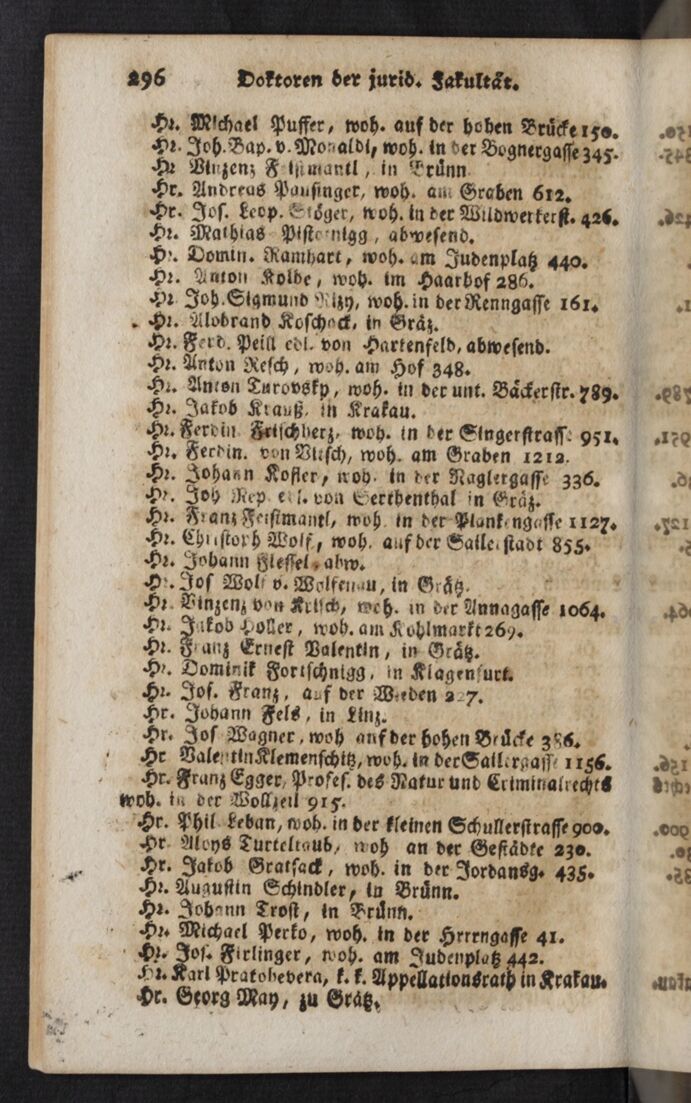 296 Doktoren der jurid. Fakultät.
Hr. Michael Puffer, woh. auf der hohen Brücke 150.
Hr. Joh. Bap. v. Monaldi, woh. in der Bognergasse 345.
Hr Vinzenz Feistmantl, in Brünn
Hr. Andreas Pausinger, woh. am Graben 612.
Hr. Jos. Leop. Stöger, woh. in der Wildwerkerst. 426.
Hr. Mathias Pistornigg, abwesend.
Hr. Domin. Ramhart, woh. am Judenplatz 440.
Hr. Anton Kolbe, woh. im Haarhof 286.
Hr Joh. Sigmund Rizy, woh. in der Renngasse 161.
Hr. Alobrand Koschock, in Gräz.
Hr. Ferd. Peill edl. von Hartenfeld, abwesend.
Hr. Anton Resch, woh. am Hof 348.
Hr. Anton Turovsky, woh. in der unt. Bäckerstr. 789.
Hr. Jakob Krauß, in Krakau.
Hr. Ferdin. Frischherz, woh. in der Singerstrasse 951.
Hr. Ferdin. von Vitsch, woh. am Graben 1212.
Hr. Johann Kofler, woh. in der Naglergasse 336.
Hr. Joh Nep. edl. von Serthenthal in Gräz.
Hr. Franz Feistmantl, woh in der Plankengasse 1127.
Hr. Christoph Wolf, woh. auf der Sailerstadt 855.
Hr. Johann Flessel, abw.
Hr. Jos Wolf v. Wolfenau, in Grätz.
Hr Vinzenz von Kriich, woh. in der Annagasse 1064.
Hr. Jakob Holler, woh. am Kohlmarkt 269.
Hr. Franz Ernest Valentin, in Grätz.
Hr. Dominik Fortschnigg, in Klagenfurt.
Hr. Jos. Franz, auf der Wieden 227.
Hr. Johann Fels, in Linz.
Hr. Jos Wagner, woh auf der hohen Brücke 386.
Hr Valentin Klemenschitz, woh. in der Sailergasse 1156.
Hr. Franz Egger, Profes. des Natur und Criminalrechts
woh. in der Wollzeil 915.
Hr. Phil Leban, woh. in der kleinen Schullerstrasse 900.
Hr Aloys Turteltaub, woh an der Gestädte 230.
Hr. Jakob Gratsack, woh. in der Jordansg. 435.
Hr. Augustin Schindler, in Brünn.
Hr. Johann Trost, in Brünn.
Hr. Michael Perko, woh. in der Hrrrngasse 41.
Hr. Jos. Firlinger, woh. am Judenplatz 442.
Hr. Karl Pratobevera, k. k. Appellationsrath in Krakau.
Hr. Georg May, zu Grätz.